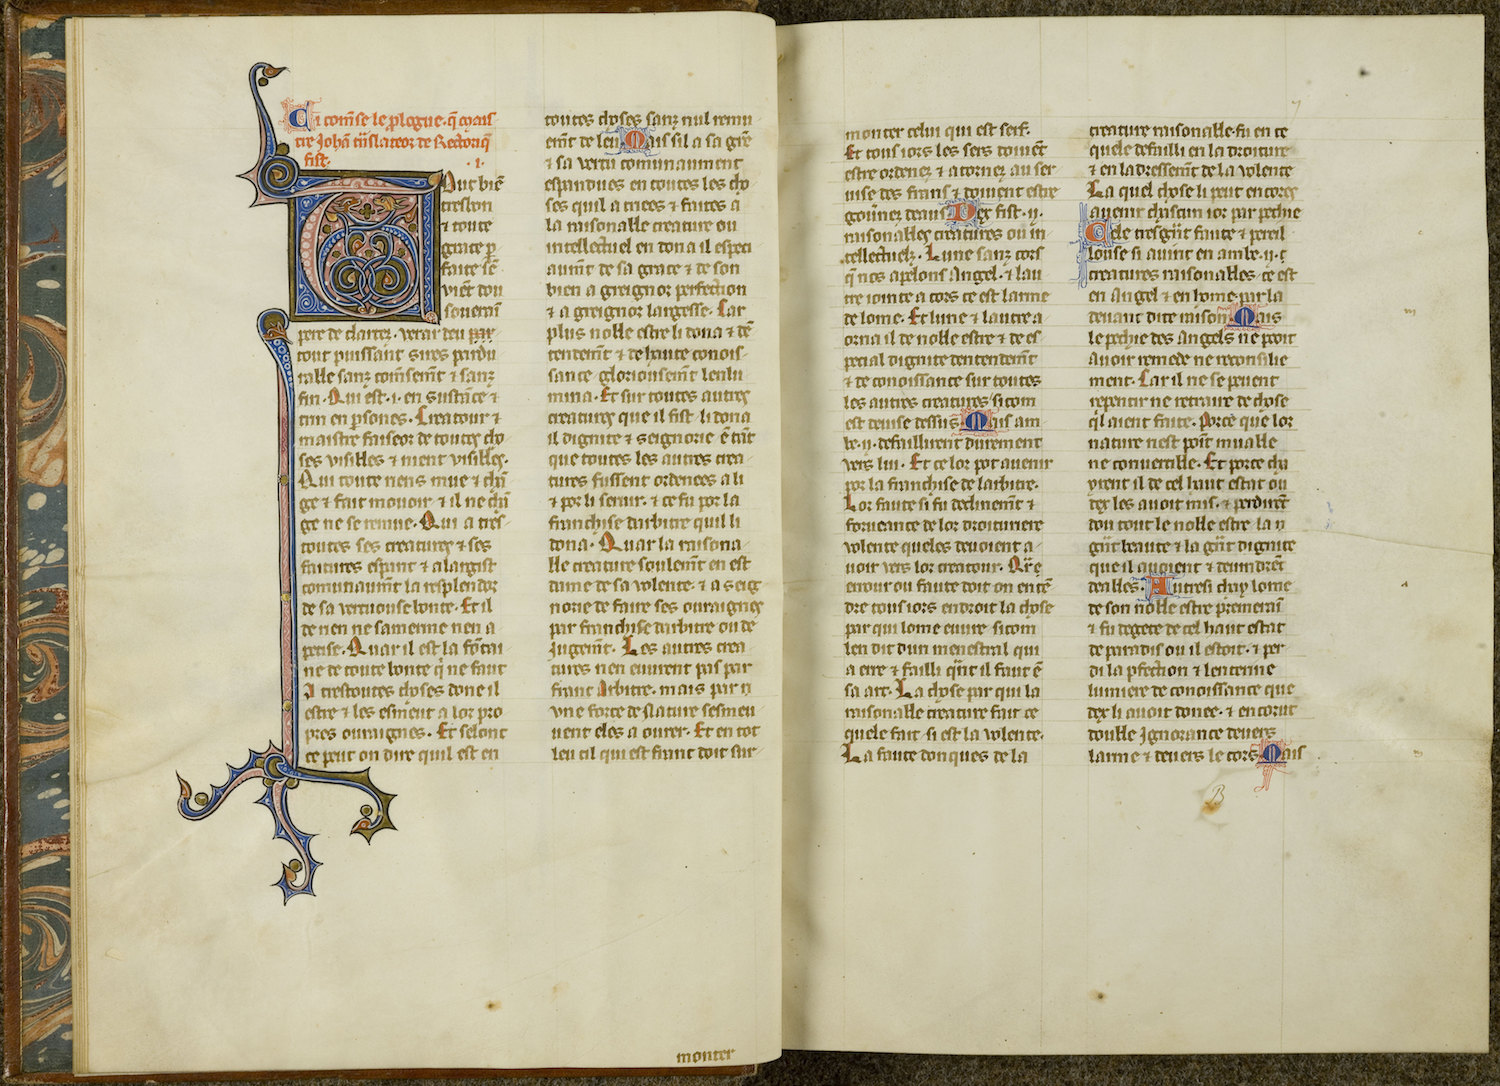 Ci com̃se le ꝓlogue · q̃ mais
tre Joħn t̃nslateor de Rectoriq̃
fist · · i ·
Tout biẽ
tresbon
⁊ toute
grace ꝑ
faite sẽ
viẽt dou
souerain
pere de clartez · verai deu par
tout puissant sires pardu
rable sanz com̃sem̃t ⁊ sanz
fin · Qui est · i · en sustãce ⁊
trin en ꝑsones · Creatour ⁊
maistre faiseor de toutes cho
ses visibles ⁊ nient visibles ·
Qui toute riens mue ⁊ chã
ge ⁊ fait mouoir ⁊ il ne chã
ge ne se remue · Qui a tres
toutes ses creatures ⁊ ses
faitures espant ⁊ alargist
comunaum̃t la resplendor
de sa vertuouse bonte · Et il
de rien ne samerme rien a
petise · Quar il est la fõtai
ne de toute bonte q̃ ne faut
A trestoutes choses done il
estre ⁊ les esment a lor pro
pres ouraignes · Et selonc
ce peut on dire quil est en
toutes choses sanz nul remu
em̃t de leu Mais sil a sa grãce
⁊ sa vertu comunaument
espandues en toutes les cho
ses quil a criees ⁊ faites a
la raisonable creature ou
intellectuel en dona il especi
aum̃t de sa grace ⁊ de son
bien a greignor perfection
⁊ a greignor largesse · Car
plus noble estre li dona ⁊ dẽ
tendem̃t ⁊ de haute conois
sance gloriousem̃t lenlu
mina · Et sur toutes autres
creatures que il fist li dona
il dignite ⁊ seignorie ẽ tãt
que toutes les autres crea
tures fussent ordenees a li
⁊ por li seruir · ⁊ ce fu por la
franchise darbitre quil li
dona · Quar la raisona
ble creature soulem̃t en est
dame de sa volente · ⁊ a seig
norie de faire ses ouraignes
par franchise darbitre ou de
Jugem̃t · Les autres crea
tures nen euurent pas par
franc Arbitre · mais par ỹ
vne force de Nature sesmeu
uent eles a ourer · Et en tot
leu cil qui est franc doit sur
monter
monter celui qui est serf ·
Et tous iors les sers doiuẽt
estre ordenez ⁊ atornez au ser
uise des frans ⁊ doiuent estre
gouũnez deaus Dex fist · ij ·
raisonables creatures ou in
tellectuelz · Lune sanz cors
q̃ nos apelons Angel · ⁊ lau
tre iointe a cors ce est larme
de lome · Et lune ⁊ lautre a
orna il de noble estre ⁊ de es
pecial dignite dentendem̃t
⁊ de conoissance sur toutes
les autres creatures si com
est deuise dessus Mais am
be · ij · defaillirent durement
vers lui · Et ce lor pot auenir
por la franchise de larbitre ·
Lor faute si fu declinem̃t ⁊
foruiance de lor droituriere
volente queles deuoient a
uoir vers lor creatour · Q̃r ẽ
errour ou faute doit on entẽ
dre tous iors endroit la chose
par qui lome euure si com
len dit dun menestral qui
a erre ⁊ failli q̃nt il faut ẽ
sa art · La chose par qui la
raisonable creature fait ce
quele fait si est la volente ·
La faute donques de la
creature raisonable fu en ce
quele defailli en la droiture
⁊ en ladressem̃t de la volente
La quel chose li peut encores
auenir chascun ior par pechie
Cele tresg̃nt faute ⁊ peril
louse si auint en ambe · ij · ᵉˢ
creatures raisonables · ce est
en Angel ⁊ en home par la
deuant dite raison Mais
le pechie des Angels ne poit
Auoir remede ne reconsilie
ment · Car il ne se peuent
repentir ne retraire de chose
q̃l aient faite · Porce que lor
nature nest poĩt muable
ne conuertible · Et porce chа
yrent il de cel haut estat ou
dex les auoit mis · ⁊ perdirẽt
dou tout le noble estre la ỹ
g̃nt beaute ⁊ la g̃nt dignite
que il auoient ⁊ deuindrẽt
deables · Autresi chay lome
de son noble estre premerain
⁊ fu degete de cel haut estat
de paradis ou il estoit · ⁊ per
di la ꝑfection ⁊ lenterine
lumiere de conoissance que
dex li auoit donee · ⁊ encorut
double Jgnorance deuers
larme ⁊ deuers le cors Mais
B